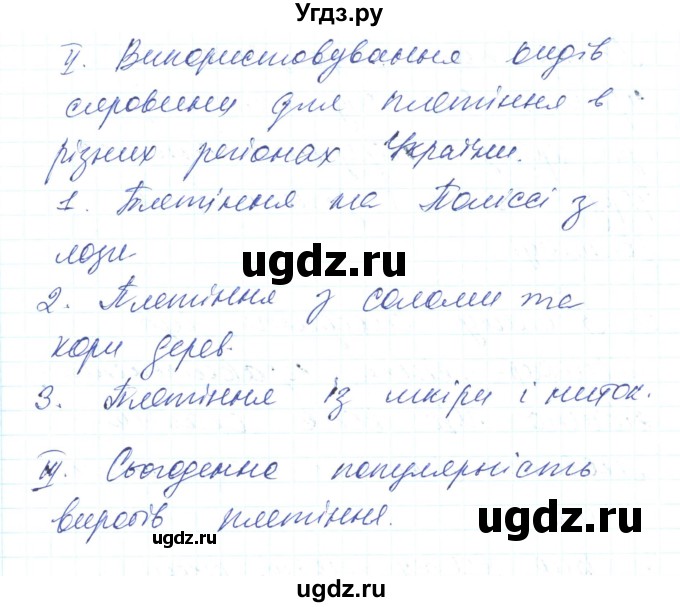 Угдз.ру
ІІ. Використовування видів
сировини для плетіння в
різних регіонах України.
1. Плетіння на Поліссі з
лози
ugdz.ru
2. Плетіння з соломи та
кори дерев.
3. Плетіння із шкіри і ниток.
ІІІ. Сьогоденна популярність
виробів плетіння.
ugdz.ru
ugdz.ru
ugdz.ru